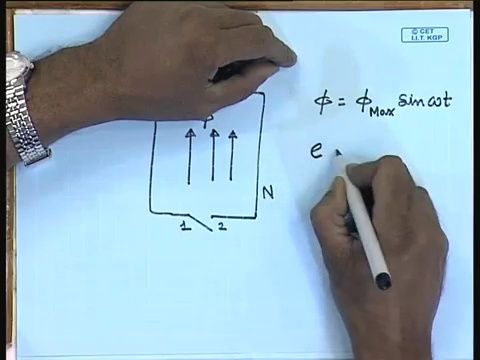 © CET
I.I.T. KGP
ϕ = ϕ_Max sin ωt
e
N
1 2